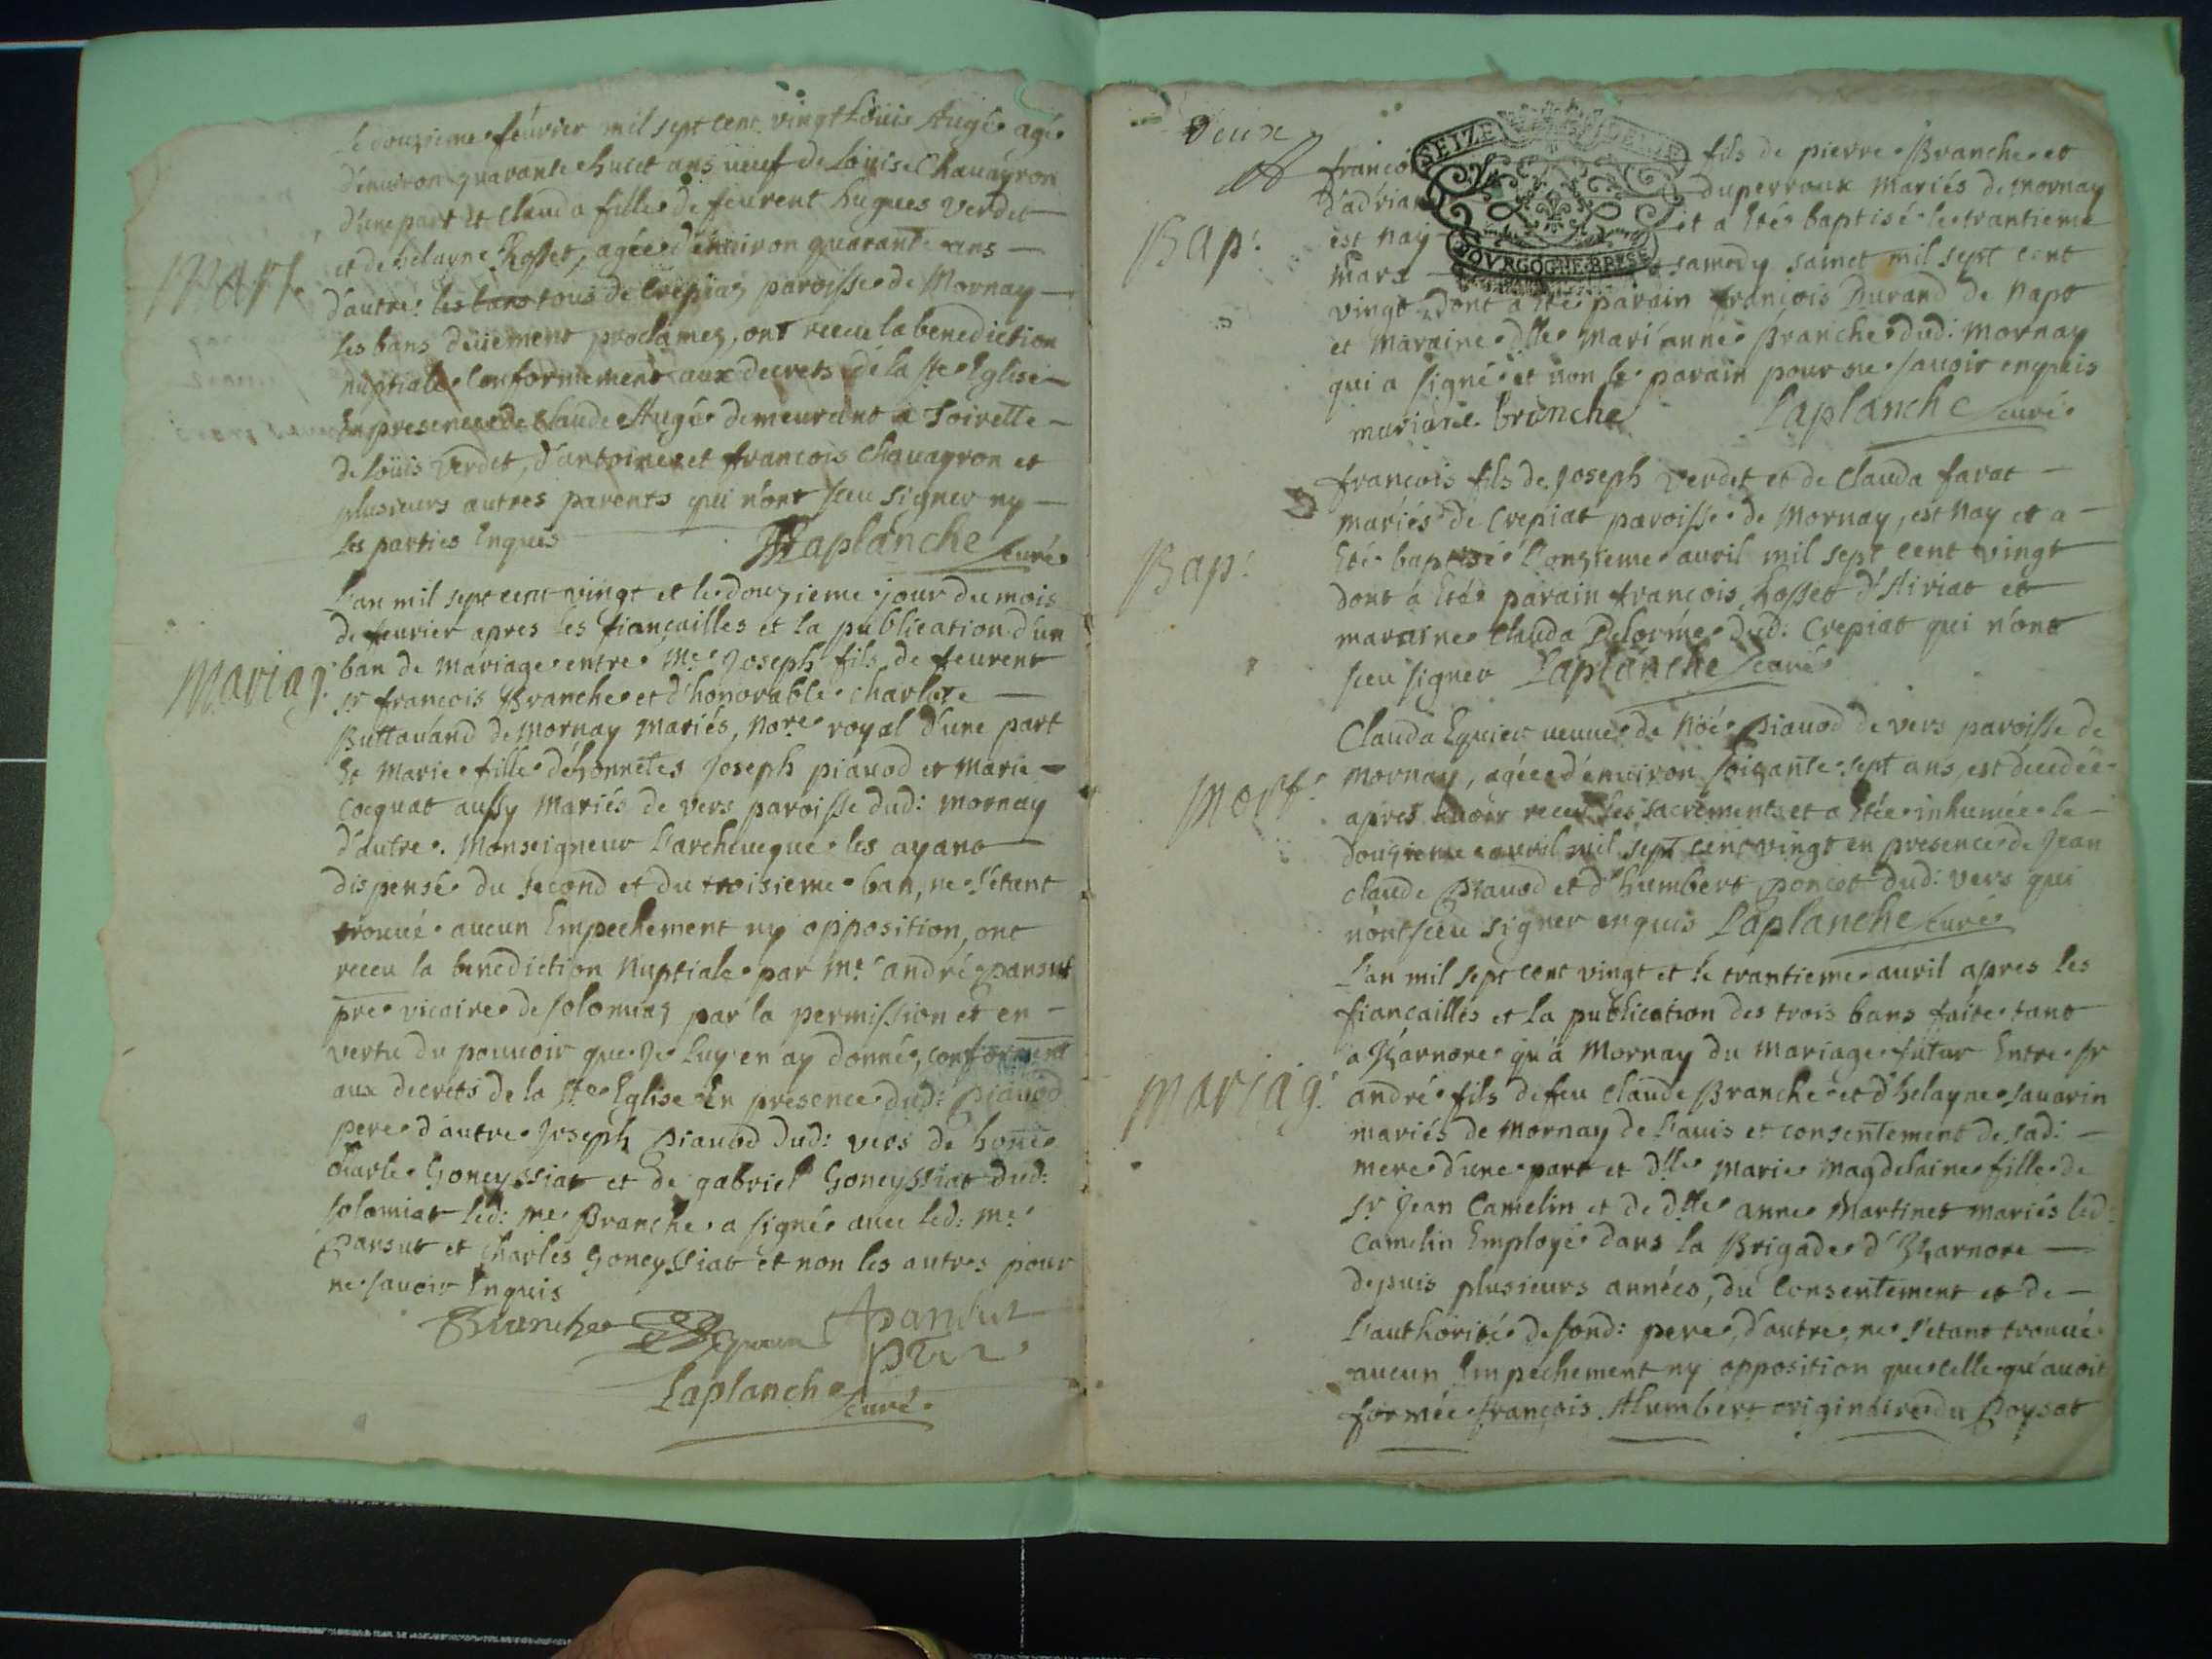 Le douzieme feúvrier mil sept cent vingt Loüis Augé agé
d'environ quarante huict ans veuf de Loüise Chavayron
d'une part et Clauda fille de feurent hugues Verdet
et de helayne Rosset, agée d'environ quarante ans
Mari.
d'autre les bans tous de Crepiaz paroisse de Mornay
les bans düement proclamez, ont receu la benediction
nuptiale Conformement aux decrets de la ste Eglise
En presence de Claude Augé demeurant a Toirette
de Loüis Verdet, d'antoine et francois Chavayron et
plusieurs autres parents qui n'ont sceu signer ny
les parties Enquis Laplanche curé
L'an mil sept cent vingt et le douzieme jour du mois
de feurier apres les fiançailles et la publication d'un
Mariag.
ban de mariage entre Me Joseph fils de feurent
sr françois Branche et d'honorable charlote
Buttavand de Mornay mariés, Nore royal d'une part
Et Marie fille d'honnetes Joseph piavod et Marie
Cocquat aussy Mariés de vers paroisse dud: mornay
d'autre. Monseigneur L'archeveque les ayant
dispensé du second et du troisieme ban, ne s'etant
trouvé aucun Empechement ny opposition, ont
receu la benediction Nuptiale par Me andré pansut
pre vicaire de solomiaz par la permission et en
vertu du pouvoir que Je Luy en ay donné, conforment
aux decrets de la ste Eglise En presence dud: piavod
pere d'autre Joseph piavod dud: vers de hone
Charle Goneyssiat et de gabriel Goneyssiat dud:
solomiat led: me Branche a signé avec led: me
Pansut et Charles Goneyssiat et non les autres pour
ne savoir Enquis
Branche Pansut
ptre
Laplanche curé
Deux
SEIZE
BOVRGOGNE BRESSE
francoi fils de pierre Branche et
d'adrian duperroux Mariés de Mornay
Bap:
est Nay et a Eté baptisé le trantieme
Mars samedy samet mil sept cent
vingt dont a Eté parain françois Durand de Napt
et Maraine dlle Mari'anne Branche dud: Mornay
qui a signé et non le parain pour ne savoir enquis
mariane branche Laplanche curé
françois fils de Joseph Verdet et de Clauda favat
mariés de Crepiat paroisse de Mornay, est Nay et a
Bap:
Eté baptisé L'onzieme avril mil sept cent vingt
dont a Eté parain françois Rosset d'Airiat et
maraine Clauda Delorme dud: Crepiat qui n'ont
sceu signer Laplanche curé
Clauda Eguier veuve de Noé Piavod de vers paroisse de
Mort.
Mornay, agée d'environ soixante sept ans est decedée
apres avoir receu les sacrements et a Etée inhumée le
douzieme avril mil sept cent vingt en presence de Jean
claude Piavod et d'humbert poncet dud: vers qui
n'ont sceu signer enquis Laplanche curé
L'an mil sept cent vingt et le trantieme avril apres les
fiançailles et la publication des trois bans faite tant
a Yzarnore qu'a Mornay du Mariage futur Entre sr
Mariag.
andré fils de feu Claude Branche et d'helayne savarin
mariés de Mornay de l'avis et consentement de sad:
mere d'une part et dlle Marie Magdelaine fille de
sr Jean Camelin et de dlle anne Martinet mariés led:
Camelin Employé dans la Brigade d'Yzarnore
depuis plusieurs années, du Consentement et de
L'authorité de sond: pere d'autre, ne s'etant trouvé
aucun Empechement ny opposition que celle qu'avoit
formée françois Humbert originaire du Poysat